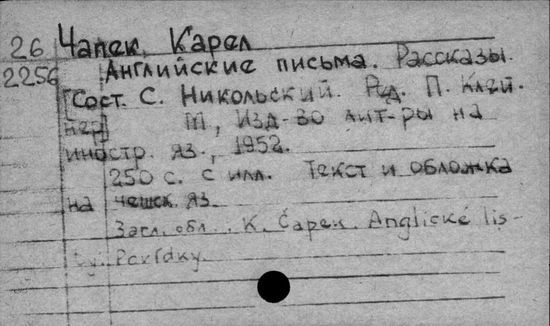 26 Чапек, Карел
2256 Английские письма. Рассказы.
[Сост. С. Никольский. Ред. П. Клей-
нер] М, Изд-во лит-ры на
иностр. яз., 1952.
250 с. с илл. Текст и обложка
на чешск. яз.
Загл. обл.: K. Čapek. Anglické lis-
ty. Povídky.